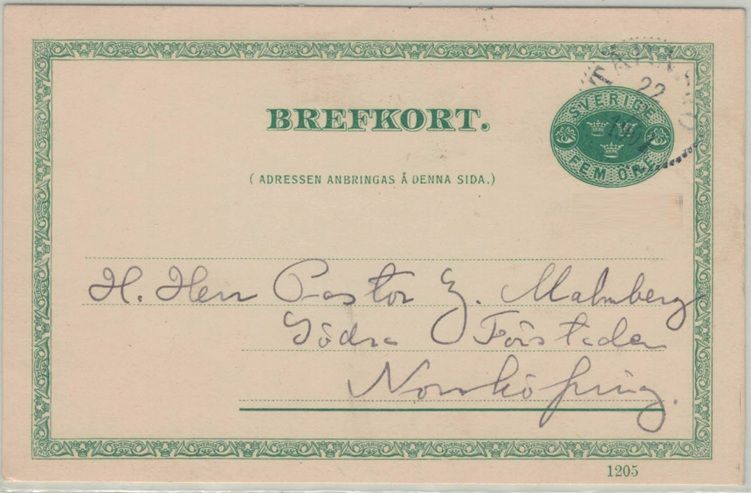 22
SVERIGE
FEM ÖRE
BREFKORT.
( ADRESSEN ANBRINGAS Å DENNA SIDA.)
H. Herr Pastor E. Malmberg
Södra Förstaden
Norrköping.
1205